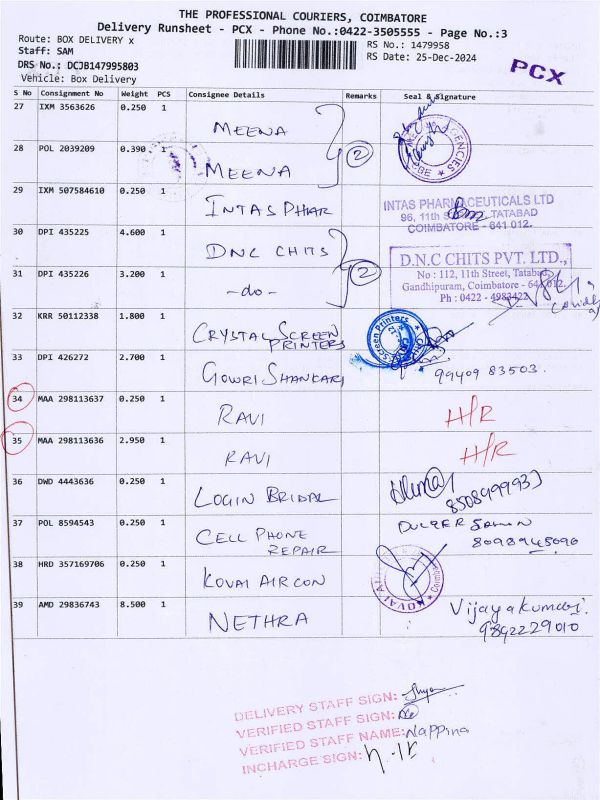 THE PROFESSIONAL COURIERS, COIMBATORE
Delivery Runsheet - PCX - Phone No.:0422-3505555 - Page No.:3
Route: BOX DELIVERY x
RS No.: 1479958
Staff: SAM
RS Date: 25-Dec-2024
DRS No.: DCJB147995803
Vehicle: Box Delivery
PCX
S No Consignment No Weight PCS Consignee Details Remarks Seal & Signature
27 IXM 3563626 0.250 1 MEENA
28 POL 2039209 0.390 1 MEENA 2
AGENCIES
29 IXM 507584610 0.250 1 INTAS PHAR
INTAS PHARMACEUTICALS LTD
96, 11th TATABAD
COIMBATORE - 641 012.
30 DPI 435225 4.600 1 DNC CHITS
31 DPI 435226 3.200 1 -do- 2
D.N.C CHITS PVT. LTD.,
No : 112, 11th Street, Tatabad,
Gandhipuram, Coimbatore - 641 012.
Ph : 0422 - 4983422
32 KRR 50112338 1.800 1 CRYSTAL SCREEN
PRINTERS
Screen Printers
33 DPI 426272 2.700 1 GOWRI SHANKAR
99409 83503.
34 MAA 298113637 0.250 1 RAVI H/R
35 MAA 298113636 2.950 1 RAVI H/R
36 DWD 4443636 0.250 1 LOGIN BRIDAL
37 POL 8594543 0.250 1 CELL PHONE
REPAIR
38 HRD 357169706 0.250 1 KOVAI AIRCON
KOVAI
39 AMD 29836743 8.500 1 NETHRA
Vijayakumari
9842229010
DELIVERY STAFF SIGN:
VERIFIED STAFF SIGN:
VERIFIED STAFF NAME:
INCHARGE SIGN: